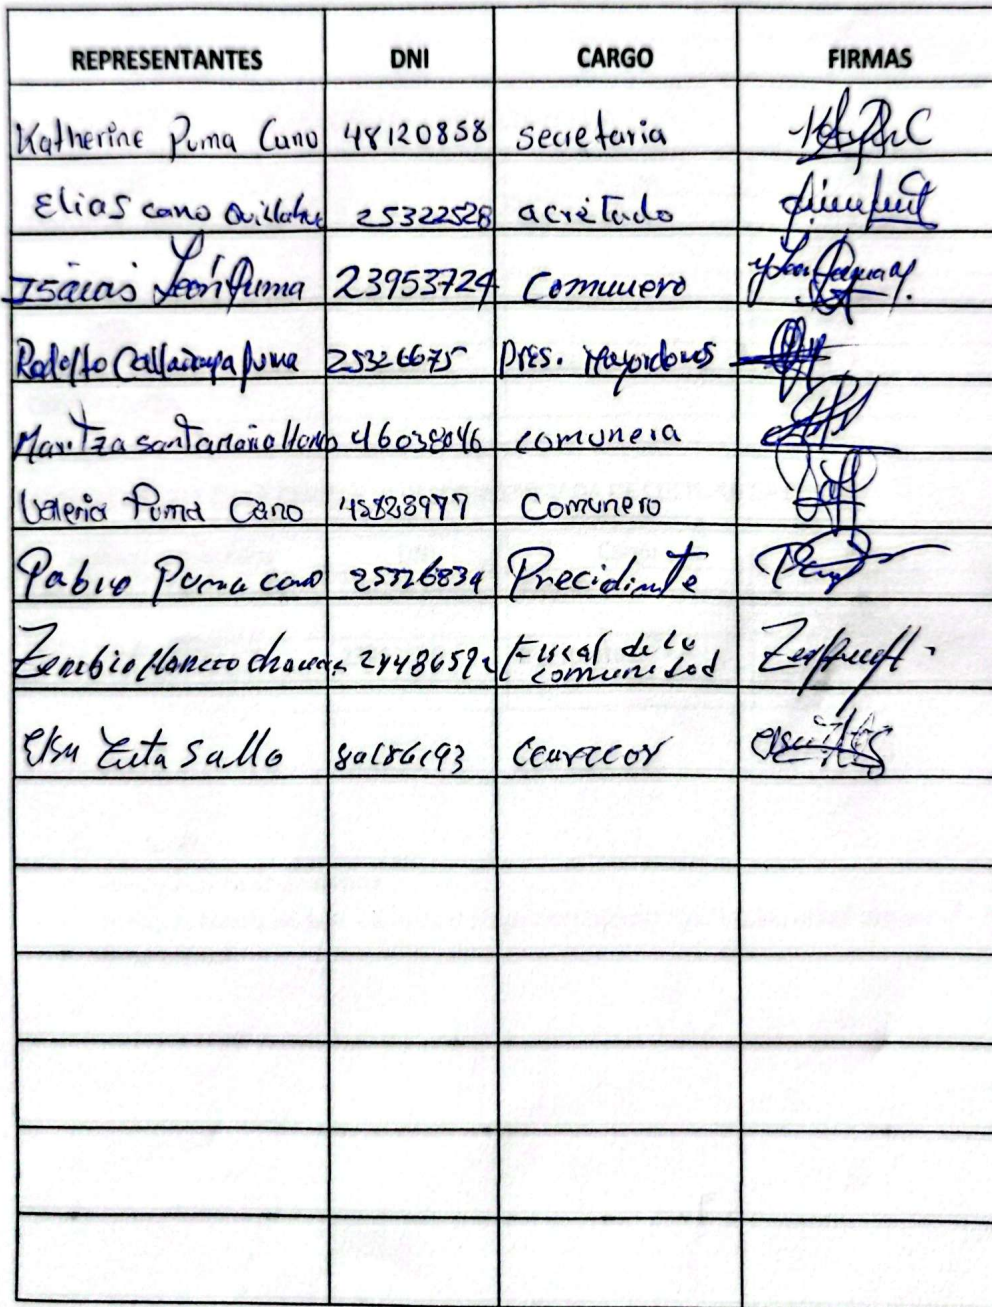 REPRESENTANTES DNI CARGO FIRMAS
Katherine Puma Cano 48120858 secretaria
Elias cano 25322528 acretado
Isaias León Puma 23953724 Comunero
Rodolfo Callañaupa Puma 25326675 Pres. Mayordomos
Maritza santamaria 46038046 comunera
Valeria Puma Cano 43828977 Comunero
Pabio Puma cano 25326834 Precidinte
Zenobio 24486592 Fiscal de la
comunidad
Elsa Zuta Sallo 80186193